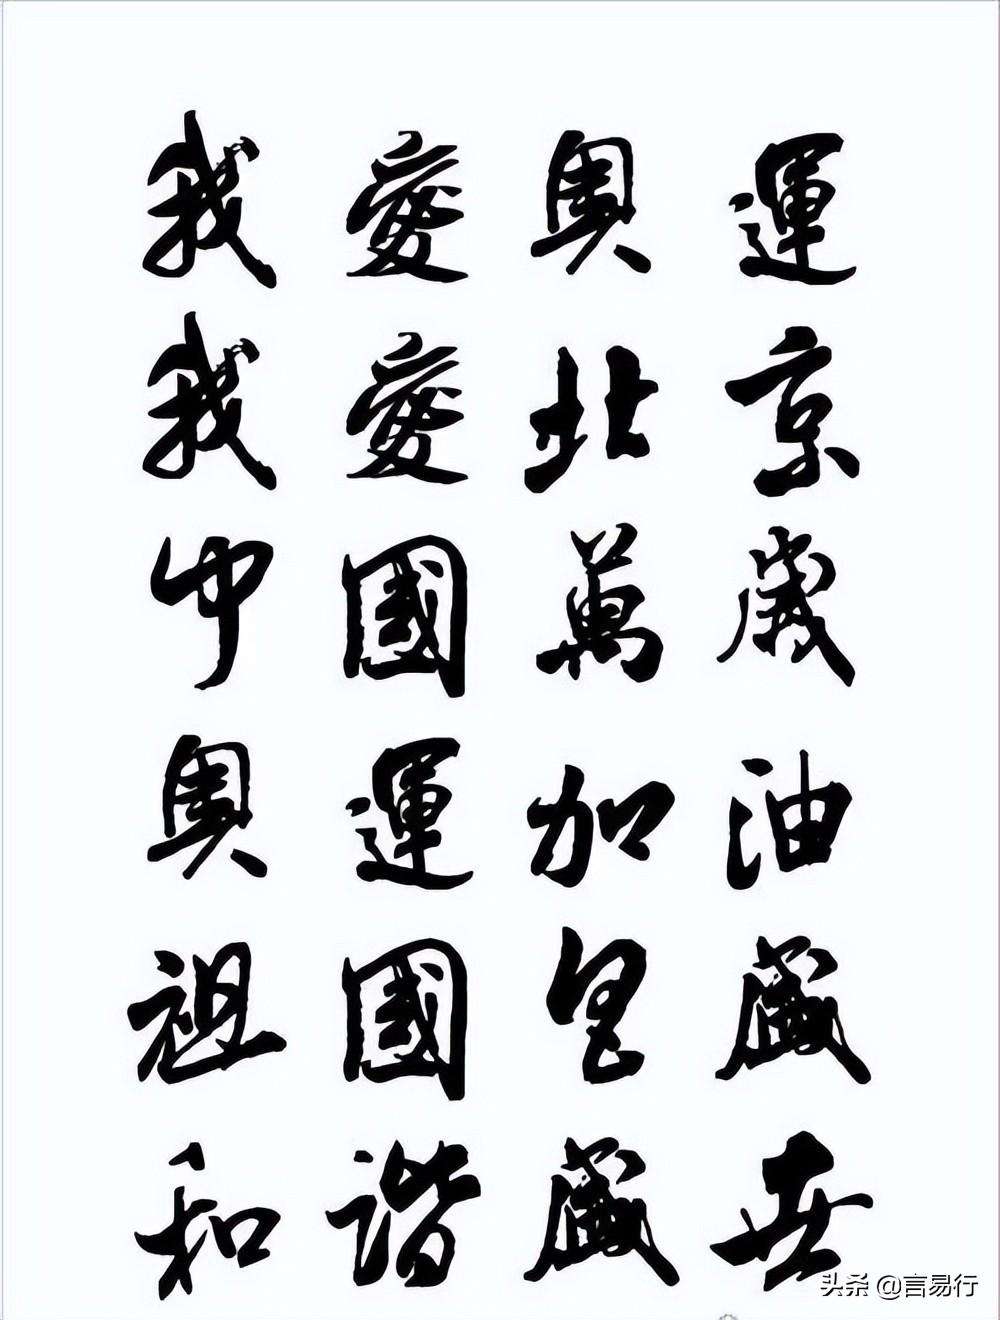 我愛奧運
我愛北京
中國萬歲
奧運加油
祖國昌盛
和諧盛世
头条 @言易行